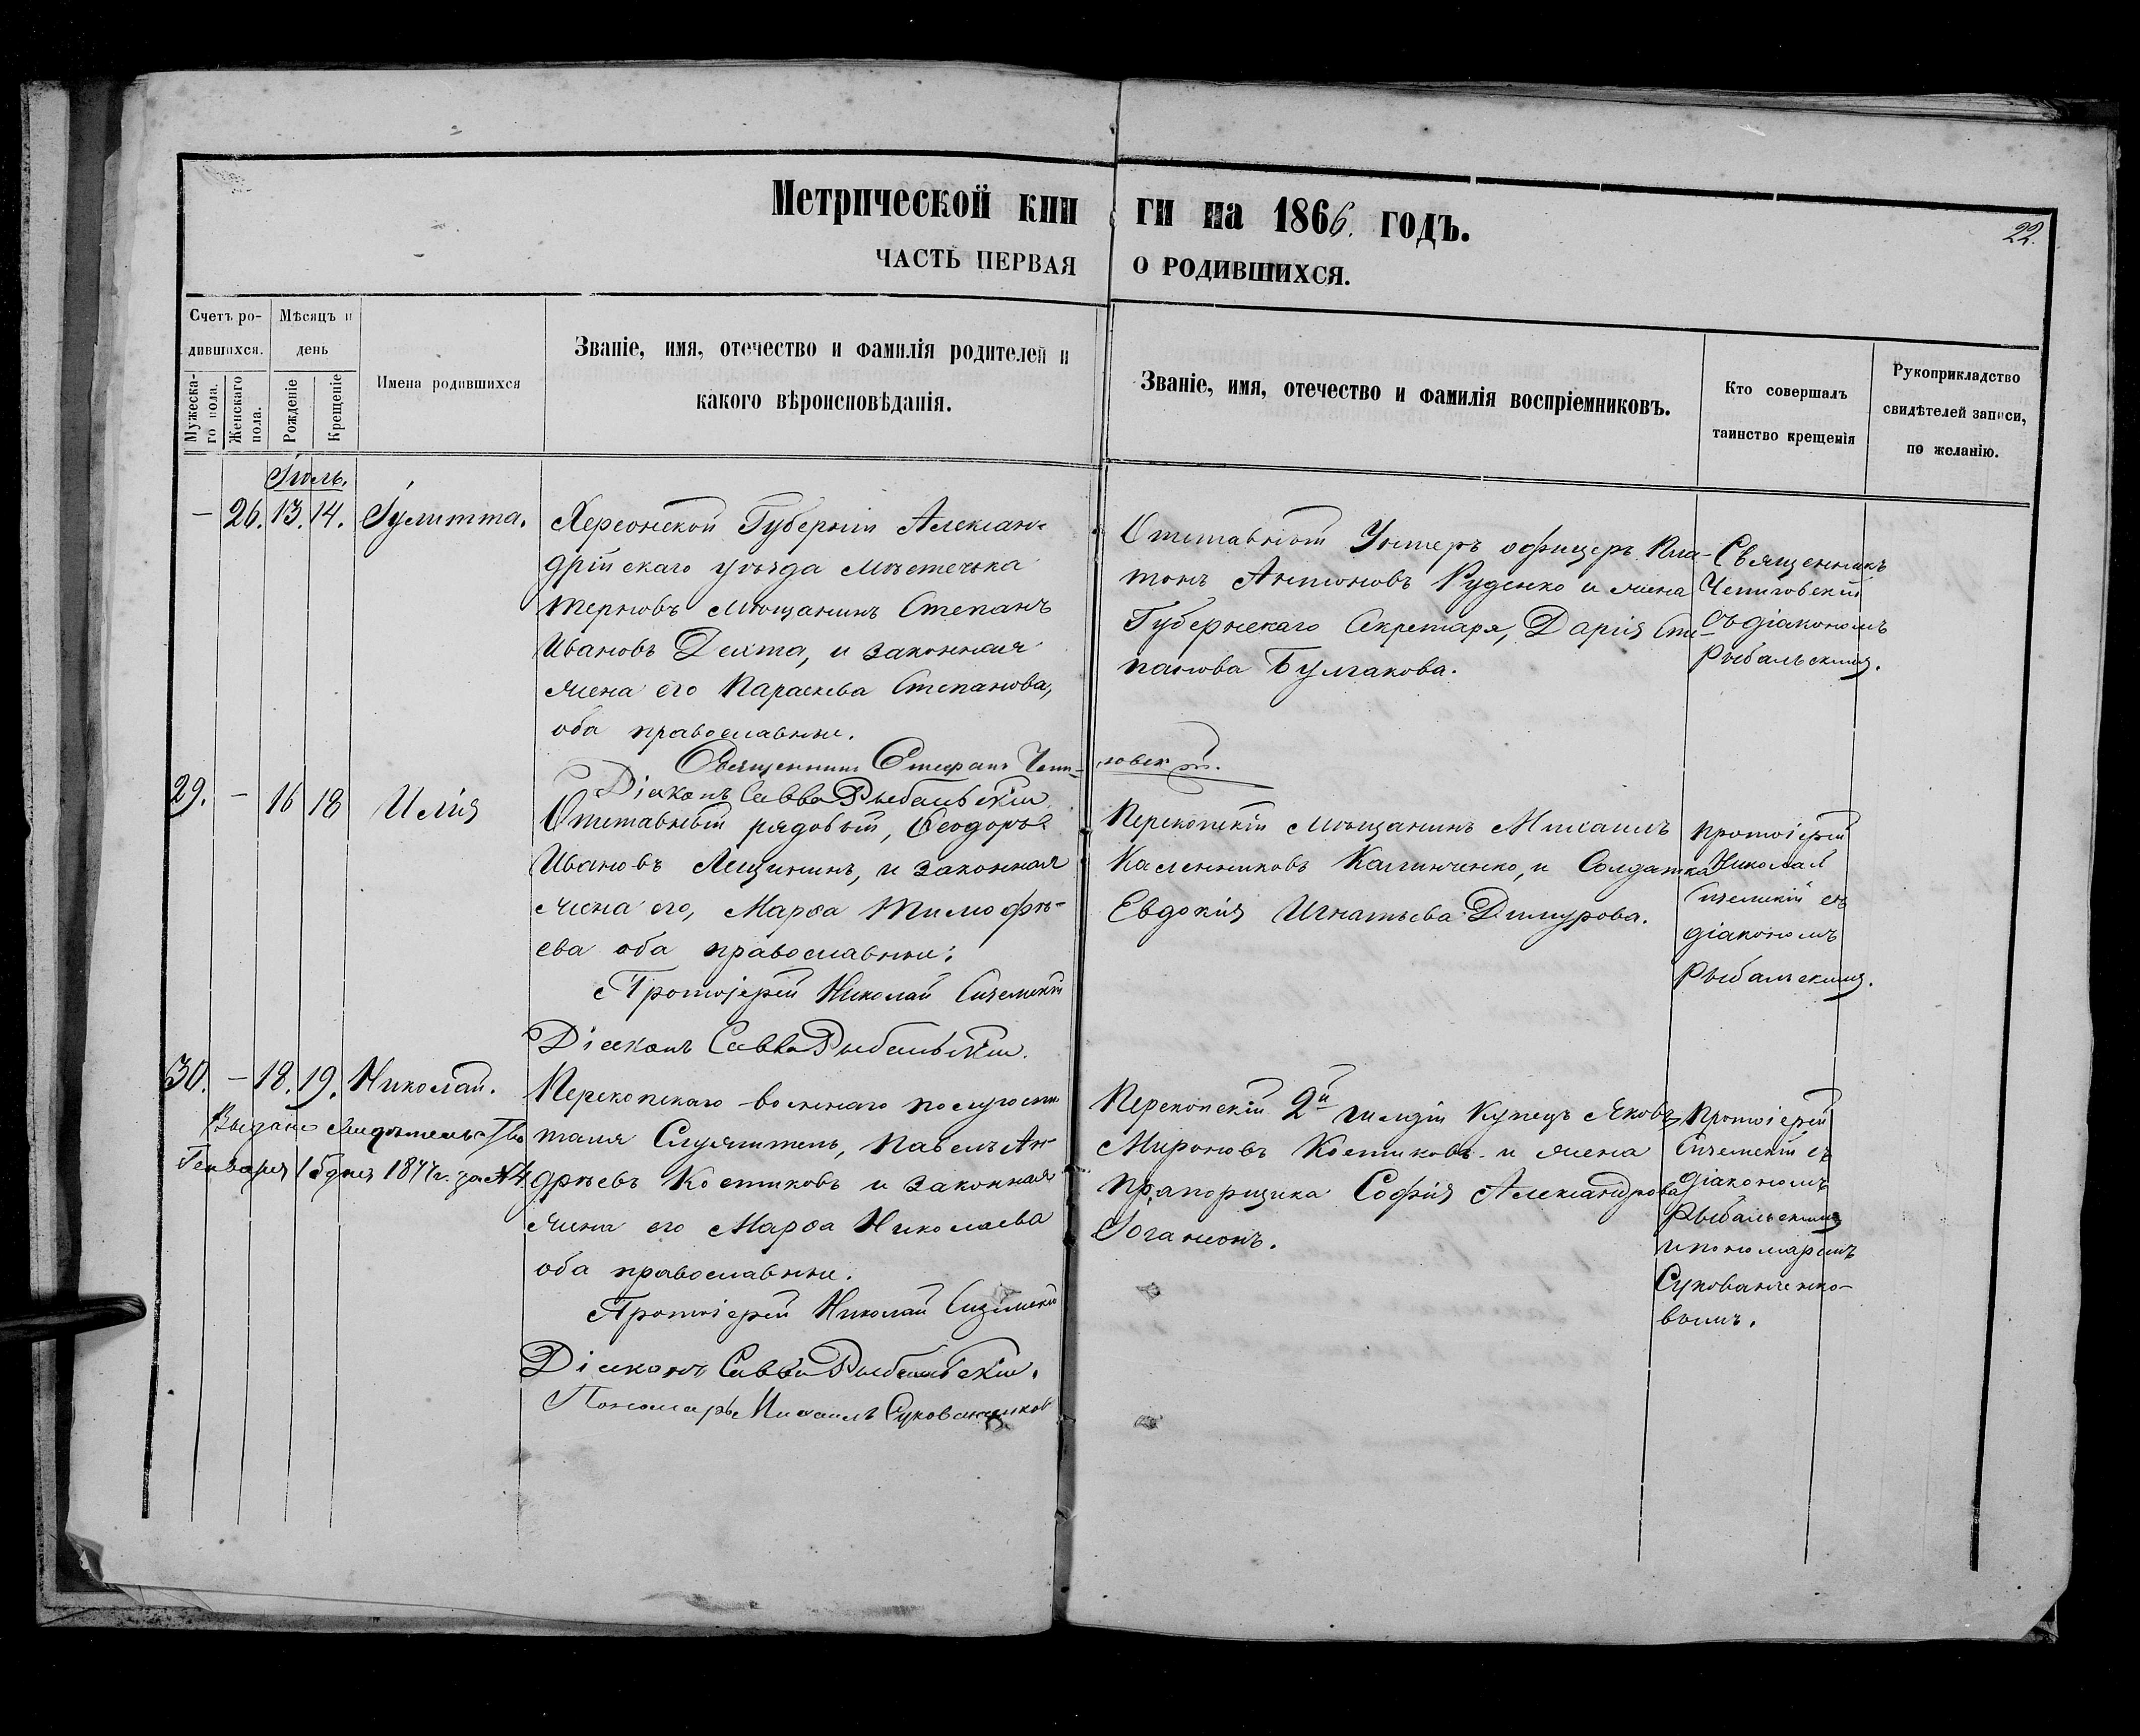 Метрической кни ги на 1866. годъ.
22.
ЧАСТЬ ПЕРВАЯ О РОДИВШИХСЯ.
Счетъ родившихся.
Мужескаго пола.
Женскаго пола.
Мѣсяцъ и день
Рожденіе
Крещеніе
Имена родившихся
Званіе, имя, отечество и фамилія родителей и
какого вѣроисповѣданія.
Званіе, имя, отечество и фамилія воспріемниковъ.
Кто совершалъ
таинство крещенія
Рукоприкладство
свидѣтелей записи,
по желанію.
Іюль.
— 26. 13. 14. Іулитта.
Херсонской Губерніи Алексан-
дрійскаго уѣзда мѣстечка
Терновъ мѣщанинъ Степанъ
Ивановъ Дехта, и законная
жена его Параскева Степанова,
оба православные.
Священникъ Стефанъ Чепи-
говскій.
Діаконъ Савва Рыбальскій
Отставный Унтеръ офицеръ Пла-
тонъ Антоновъ Руденко и жена
Губернскаго Секретаря, Дарія Сте-
панова Булгакова.
Священникъ
Чепиговскій
съ діакономъ
Рыбальскимъ.
29. — 16 18 Илія
Отставный рядовый, Ѳеодоръ
Ивановъ Лещининъ, и законная
жена его, Марѳа Тимофѣ-
ева оба православные:
Протоіерей Николай Сиземскій
Діаконъ Савва Рыбальскій.
Перекопскій мѣщанинъ Михаилъ
Калинниковъ Калинченко, и Солдатка
Евдокія Игнатьева Димурова.
Протоіерей
Николай
Сиземскій съ
діакономъ
Рыбальскимъ.
30. — 18. 19. Николай.
Выдано свидѣтельство
Генваря 15 дня 1877 г. за № 4
Перекопскаго военнаго полугоспи
таля Служитель, Павелъ Ан-
дреевъ Костиковъ и законная
жена его Марѳа Николаева
оба православные.
Протоіерей Николай Сиземскій
Діаконъ Савва Рыбальскій.
Пономарь Михаилъ Сукованченков
Перекопскій 2й гильдіи Купецъ Яковъ
Мироновъ Костиковъ и жена
Прапорщика Софія Александрова
Іогансонъ.
Протоіерей
Сиземскій съ
діакономъ
Рыбальскимъ
и пономаремъ
Сукованченко-
вымъ.